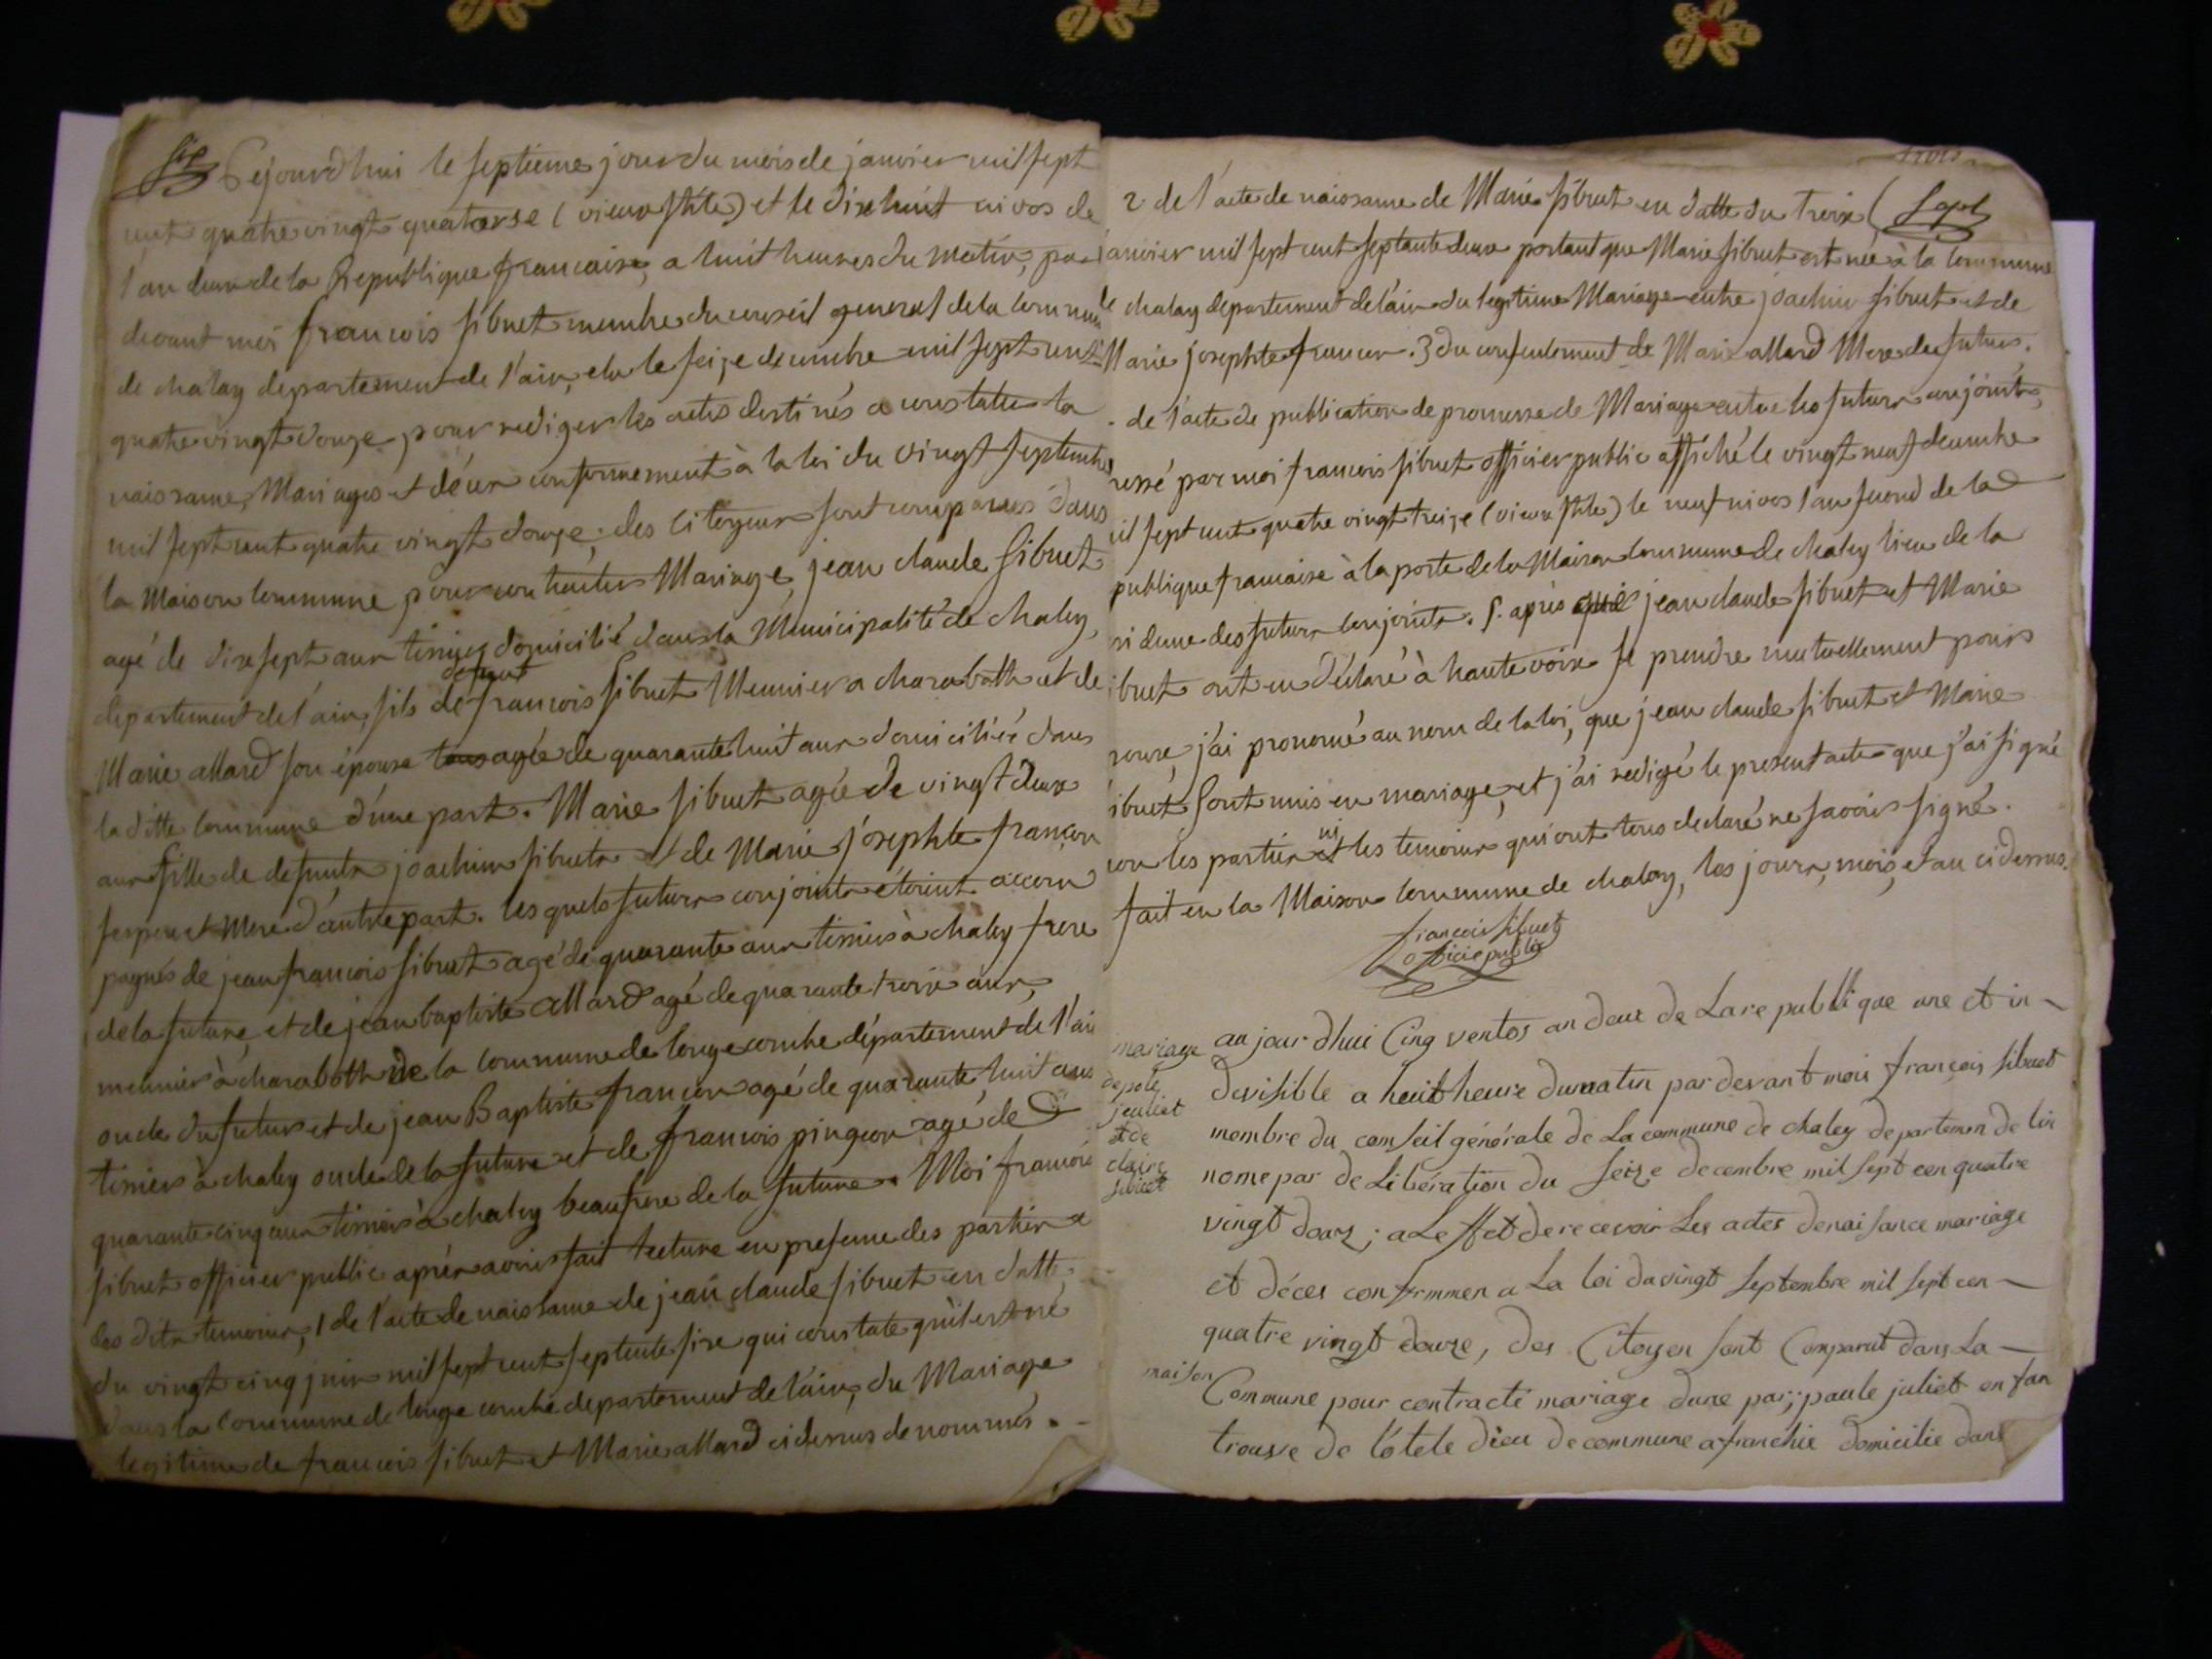 Six
Cejourdhui le septieme jour du mois de janvier mil sept
cent quatre vingt quatorse (vieux stile) et le dix huit nivos de
l'an deux de la Republique francaise, a huit heures du matin, par
devant moi francois sibuet membre du conseil general de la commune
de chaley departement de l'ain, elu le seize decembre mil sept cent
quatre vingt douze pour rediger les actes destinés a constater la
naissance, Mariages et décès conformement à la loi du vingt septembre
mil sept cent quatre vingt douze; des citoyens sont comparus dans
la maison commune pour contracter Mariage, jean claude sibuet
agé de dix sept ans tissier domicilié dans la Municipalité de chaley,
defunt
departement de l'ain, fils de francois sibuet Meunier a charabotte et de
Marie allard son épouse agée de quarante huit ans domiciliée dans
la ditte commune d'une part. Marie sibuet agée de vingt deux
ans fille de defunts joachim sibuet et de Marie josephte françon
ses pere et mere d'autre part. les quels futurs conjoints étoient accom
pagnés de jean francois sibuet agé de quarante ans tissier à chaley frere
de la future, et de jean baptiste allard agé de quarante trois ans,
meunier à charabotte de la commune de longecombe département de l'ain
oncle du futur et de jean Baptiste françon agé de quarante huit ans
tissier à chaley oncle de la future et de francois pingeon agé de
quarante cinq ans tissier à chaley beaufrere de la future. Moi francois
sibuet officier public aprés avoir fait lecture en presence des parties et
des dits temoins, 1 de l'acte de naissance de jean claude sibuet en datte
du vingt cinq juin mil sept cent septante six qui constate qu'il est né
dans la commune de longecombe departement de l'ain, du Mariage
legitime de francois sibuet et Marie allard ci dessus denommés.
2 de l'acte de naissance de Marie sibuet en datte du treize
Sept
janvier mil sept cent septante deux portant que Marie sibuet est née à la commune
de chaley departement de l'ain du legitime Mariage entre joachim sibuet et de
Marie josephte francon. 3 du consentement de Marie allard Mere du futur.
de l'acte de publication de promesse de Mariage entre les futurs conjoints,
ressé par moi francois sibuet officier public affiché le vingt neuf decembre
mil sept cent quatre vingt treize (vieux stile) le neuf nivos l'an second de la
publique francaise à la porte de la Maison commune de chaley lieu de la
sidence des futurs conjoints. 5. après que jean claude sibuet et Marie
ibuet ont eu déclaré à haute voix se prendre mutuellement pour
poux, j'ai prononcé au nom de la loi, que jean claude sibuet et Marie
ibuet sont unis en mariage, et j'ai redigé le present acte que j'ai signé
non les parties ni les temoins qui ont tous declaré ne savoir signé.
fait en la Maison commune de chaley, les jours, mois, et an ci dessus.
francois Sibuet
officie public
mariage
depole
jeuliet
et de
claire
sibuet
aujourdhui Cinq ventos an deux de La republique une et in
devisible a heuit heure du matin par devant moi françois Sibuet
membre du conseil générale de La commune de chaley departemen de lin
nome par deLibération du seize decembre mil sept cen quatre
vingt douz; a Leffet de recevoir Les actes denaisance mariage
et décès conformmen a La loi du vingt septembre mil sept cen
quatre vingt douze, des Citoyen sont Comparut dans La
maison
Commune pour contracté mariage dune par; paule juliet enfan
trouve de l'ôtele dieu de commune afranchie domicilie dans